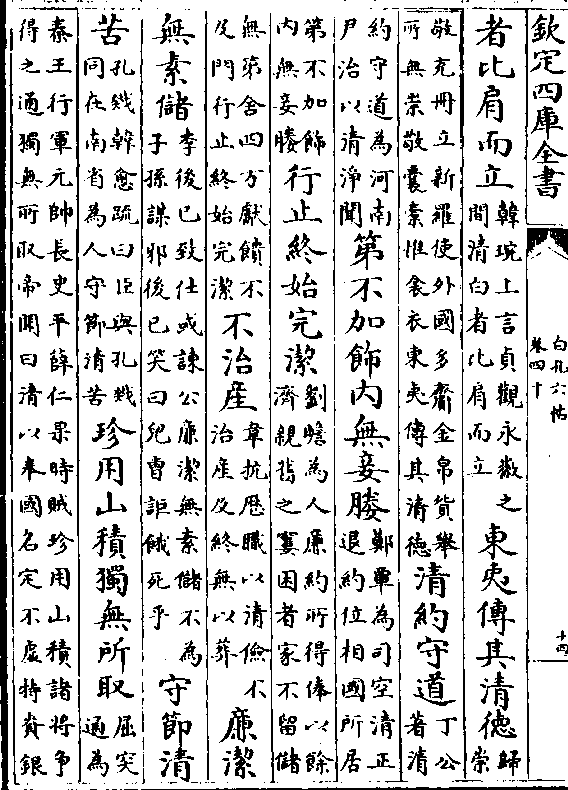 欽定四庫全書
白孔六帖
卷四十
十四
者比肩而立韓琬上言貞觀永徽之間清白者比肩而立東夷傳其清德歸崇
敬充冊立新羅使外國多齎金帛貨舉所無崇敬囊橐惟衾衣東夷傳其清德清約守道丁公著清
約守道為河南尹治以清淨聞第不加飾内無妾媵鄭覃為司空清正退約位相國所居
第不加飾内無妾媵行止終始完潔劉瞻為人廉約所得俸以餘濟親舊之窶困者家不留儲
無第舍四方獻饋不及門行止終始完潔不治産韋抗歴職以清儉不治産及終無以葬廉潔
無素儲李後已致仕或諫公廉潔無素儲不為子孫謀邪後已笑曰兒曹詎餓死乎守節清
苦孔戣韓愈疏曰臣與孔戣同在南省為人守節清苦珍用山積獨無所取屈突通為
秦王行軍元帥長史平薛仁杲時賊珍用山積諸將争得之通獨無所取帝聞曰清以奉國名定不虛特賚銀